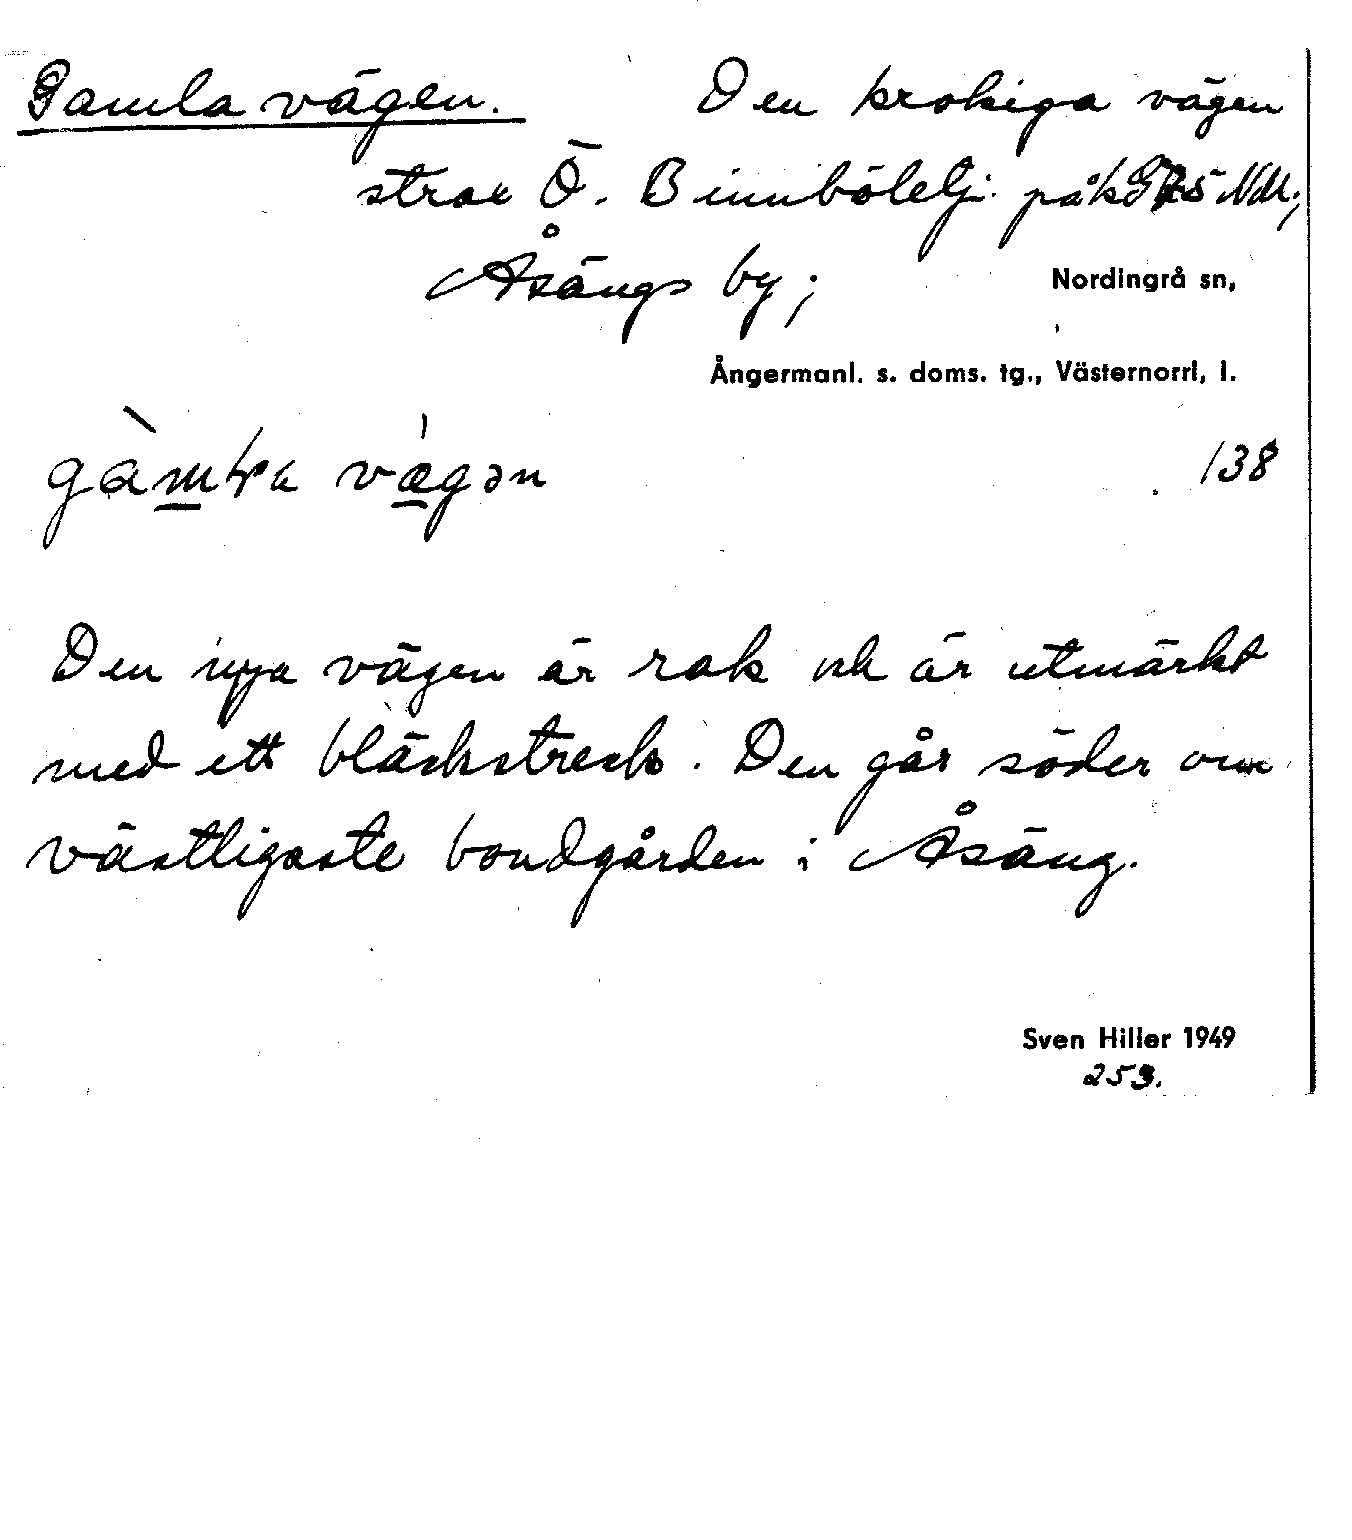 Gamla vägen. Den krokiga vägen
strax Ö. Binnbölelj. på
Åsängs by; Nordingrå sn,
Ångermanl. s. doms. tg., Västernorrl. l.
vægən 138
Den nya vägen är rak och är utmärkt
med ett bläckstreck. Den går söder om
västligaste bondgården i Åsäng.
Sven Hiller 1949
253.